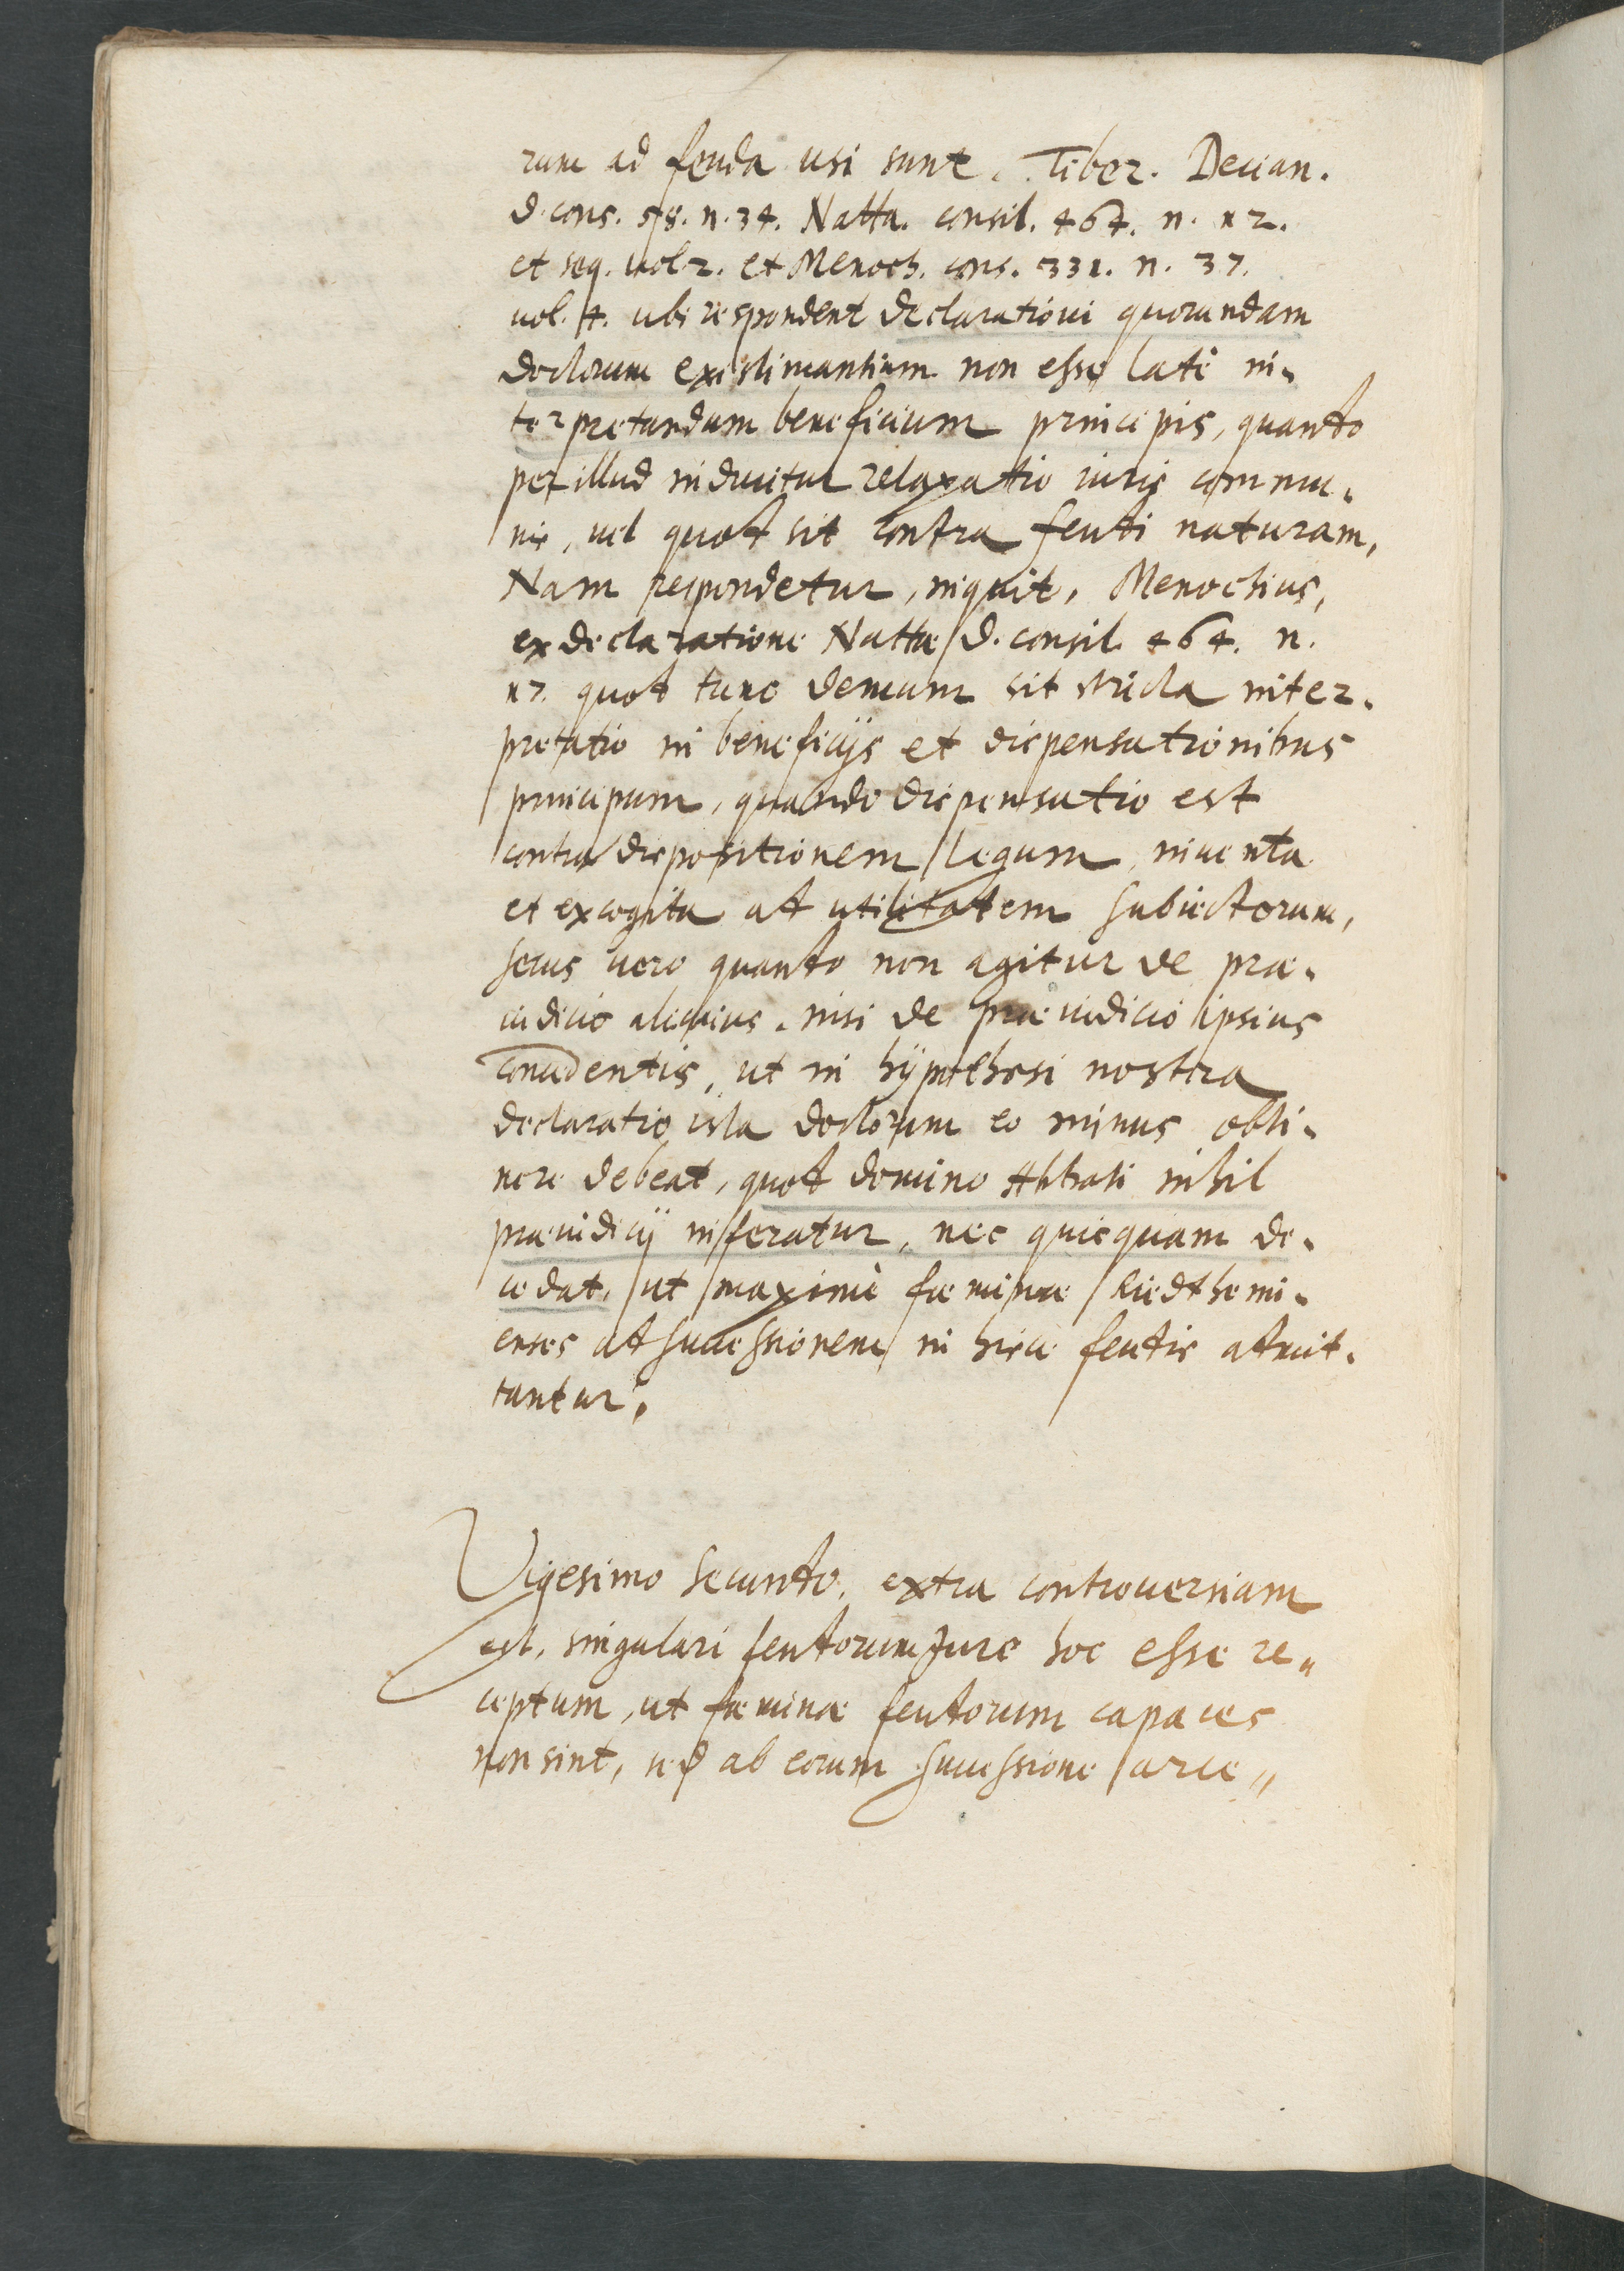 rum ad feuda usi sunt. Tiber. Decian.
d. cons. 58. n. 34. Natta. consil. 464. n. 12.
et seq. vol. 2. et Menoch. cons. 331. n. 37.
vol. 4. ubi respondent declarationi quorundam
doctorum existimantium non esse latè in-
terpretandum beneficium principis, quando
per illud inducitur relaxatio iuris commu-
nis, vel quod sit contra feudi naturam,
Nam respondetur, inquit, Menochius,
ex declaratione Nattæ d. consil. 464. n.
17. quod tunc demum sit stricta inter-
pretatio in beneficijs et dispensationibus
principum, quando dispensatio est
contra dispositionem legum, inventa
et excogita ad utilitatem subiectorum,
secus vero quando non agitur de præ-
iudicio alicuius. nisi de præiudicio ipsius
concedentis, ut in hÿpothesi nostra
declaratio ista doctorum eo minus obti-
nere debeat, quod domino Abbati nihil
præiudicij inferatur, nec quicquam de-
cedat, ut maximè fæminæ Riedthemi-
enses ad successionem in hisce feudis admit-
tantur.
Vigesimo secundo, extra controversiam
est, singulari feudorum Jure hoc esse re-
ceptum, ut fæminæ feudorum capaces
non sint, sed ab eorum successione arce-